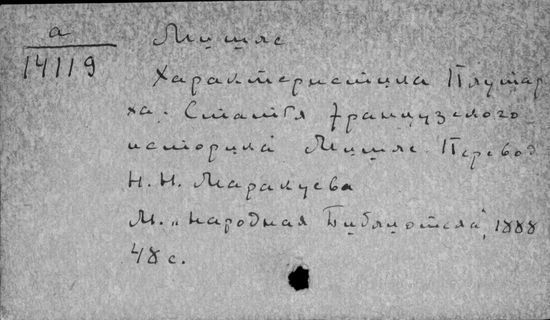 а
14119
Мишле
Характеристика Плутар
ха. Статья французского
историка Мишле. Перевод
Н. Н. Маракуева
М. „Народная Библиотека", 1888
48 с.